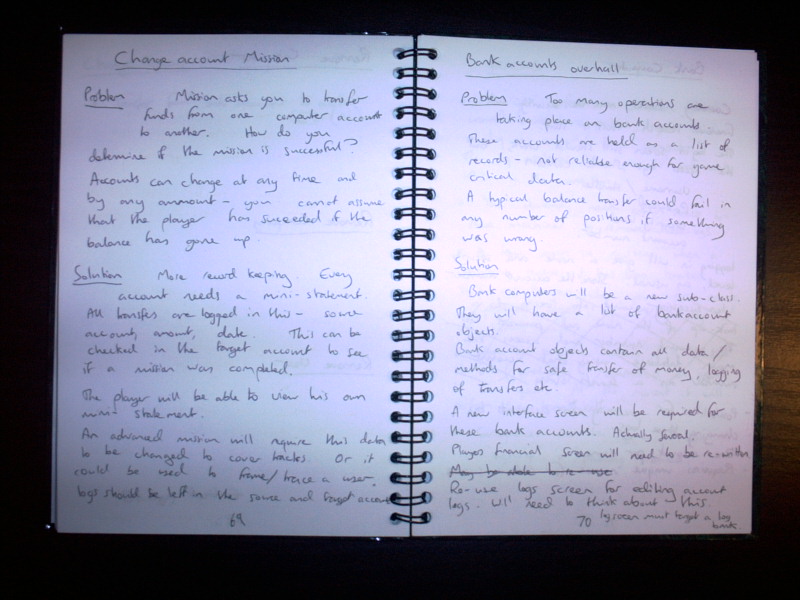 Change account Mission
Problem Mission asks you to transfer
funds from one computer account
to another. How do you
determine if the mission is successful?
Accounts can change at any time and
by any ammount - you cannot assume
that the player has succeeded if the
balance has gone up.
Solution More record keeping. Every
account needs a mini-statement.
All transfers are logged in this - source
account, amount, date. This can be
checked in the target account to see
if a mission was completed.
The player will be able to view his own
mini-statement.
An advanced mission will require this data
to be changed to cover tracks. Or it
could be used to frame/trace a user.
logs should be left in the source and target account
69
Bank accounts overhall
Problem Too many operations are
taking place on bank accounts.
These accounts are held as a list of
records - not reliable enough for game
critical data.
A typical balance transfer could fail in
any number of positions if something
was wrong.
Solution
Bank computers will be a new sub-class.
They will have a list of bankaccount
objects.
Bank account objects contain all data/
methods for safe transfer of money, logging
of transfers etc.
A new interface screen will be required for
these bank accounts. Actually several.
Players financial screen will need to be re-written
May be able to re-use
Re-use logs screen for editing account
logs. Will need to think about this.
70 logscreen must target a log
bank